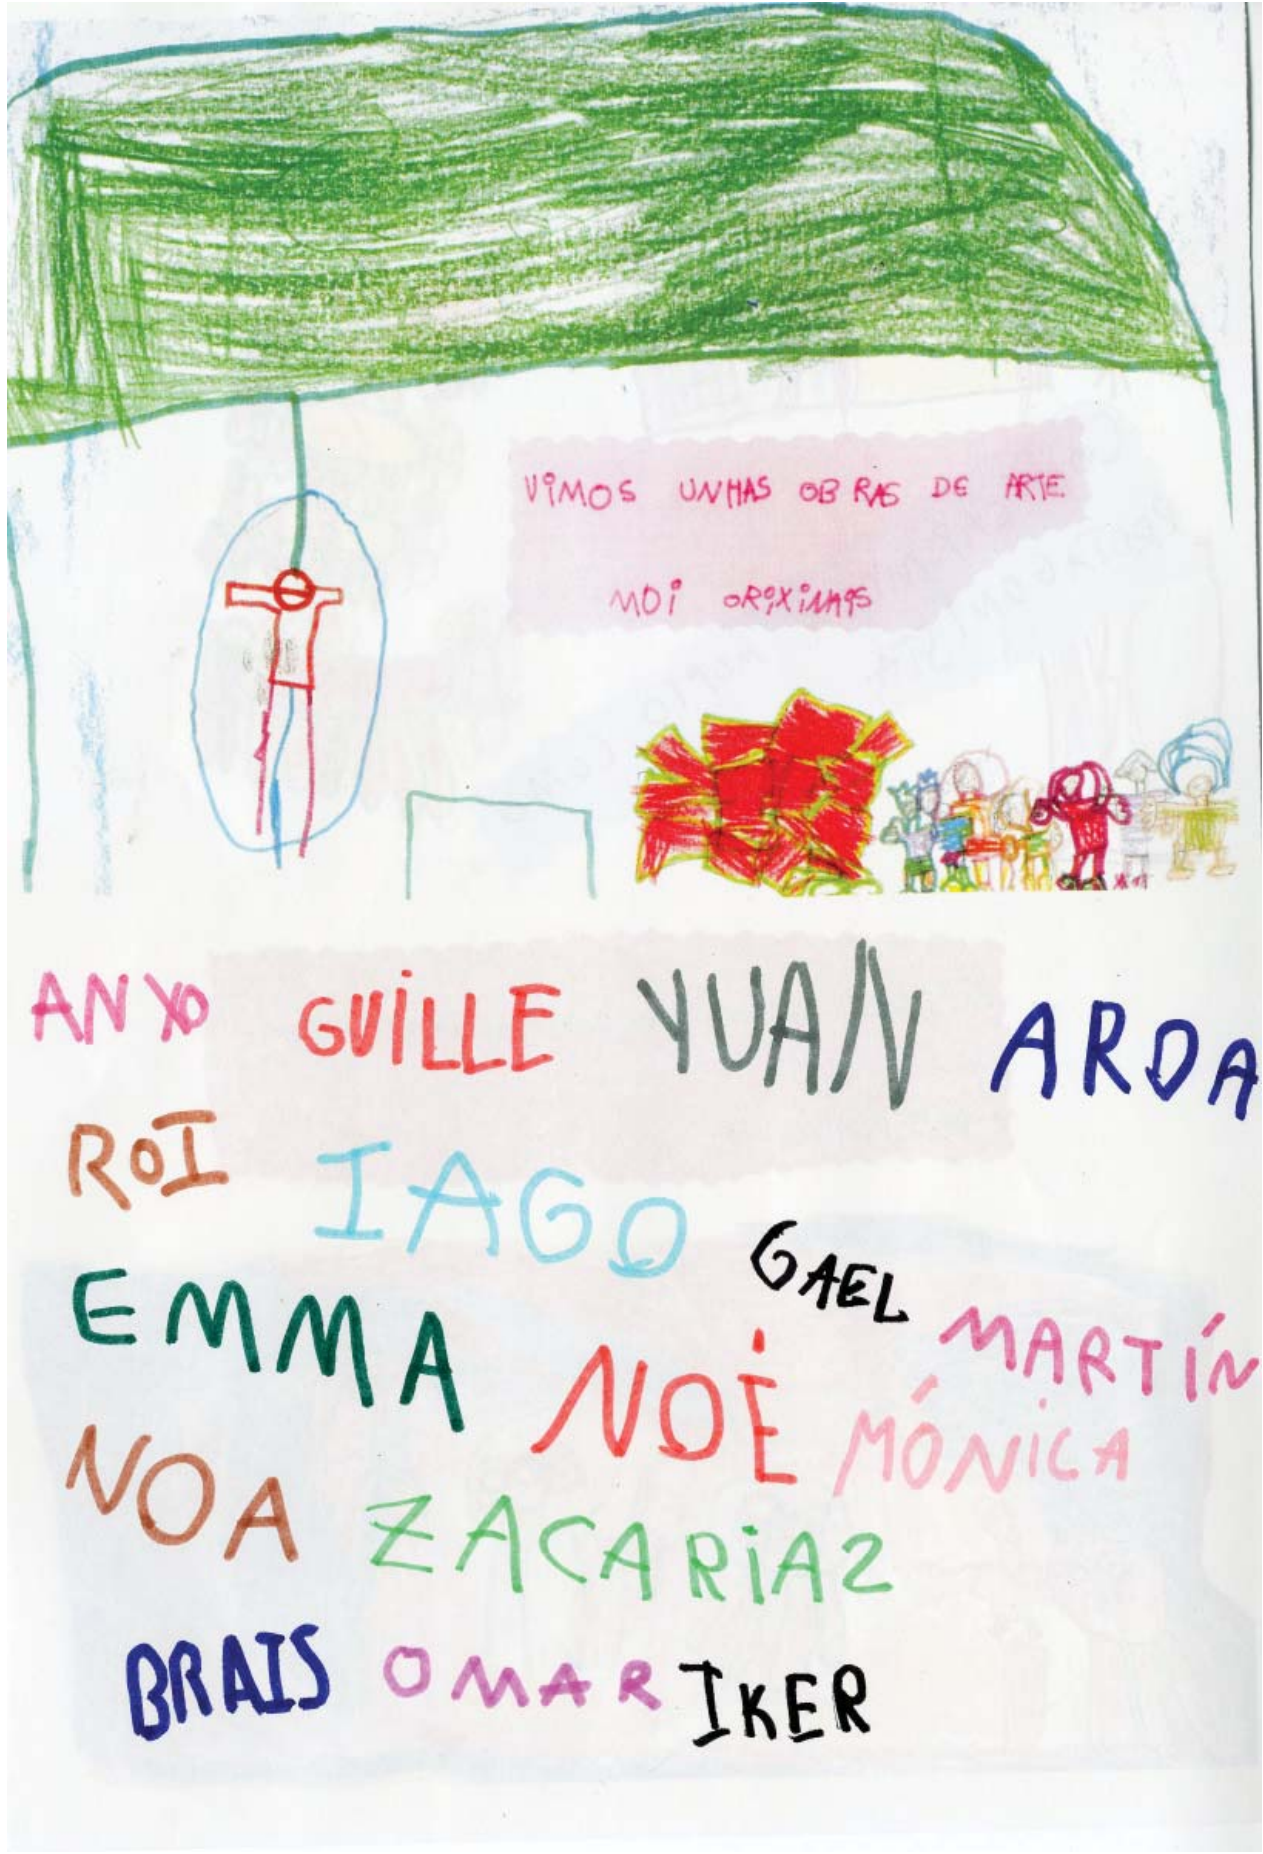 VIMOS UNHAS OBRAS DE ARTE
MOI ORIXINAIS
ANXO GUILLE YUAN ARDA
ROI IAGO GAEL
EMMA NOÉ MARTÍN
NOA ZACARIAZ MÓNICA
BRAIS OMAR IKER